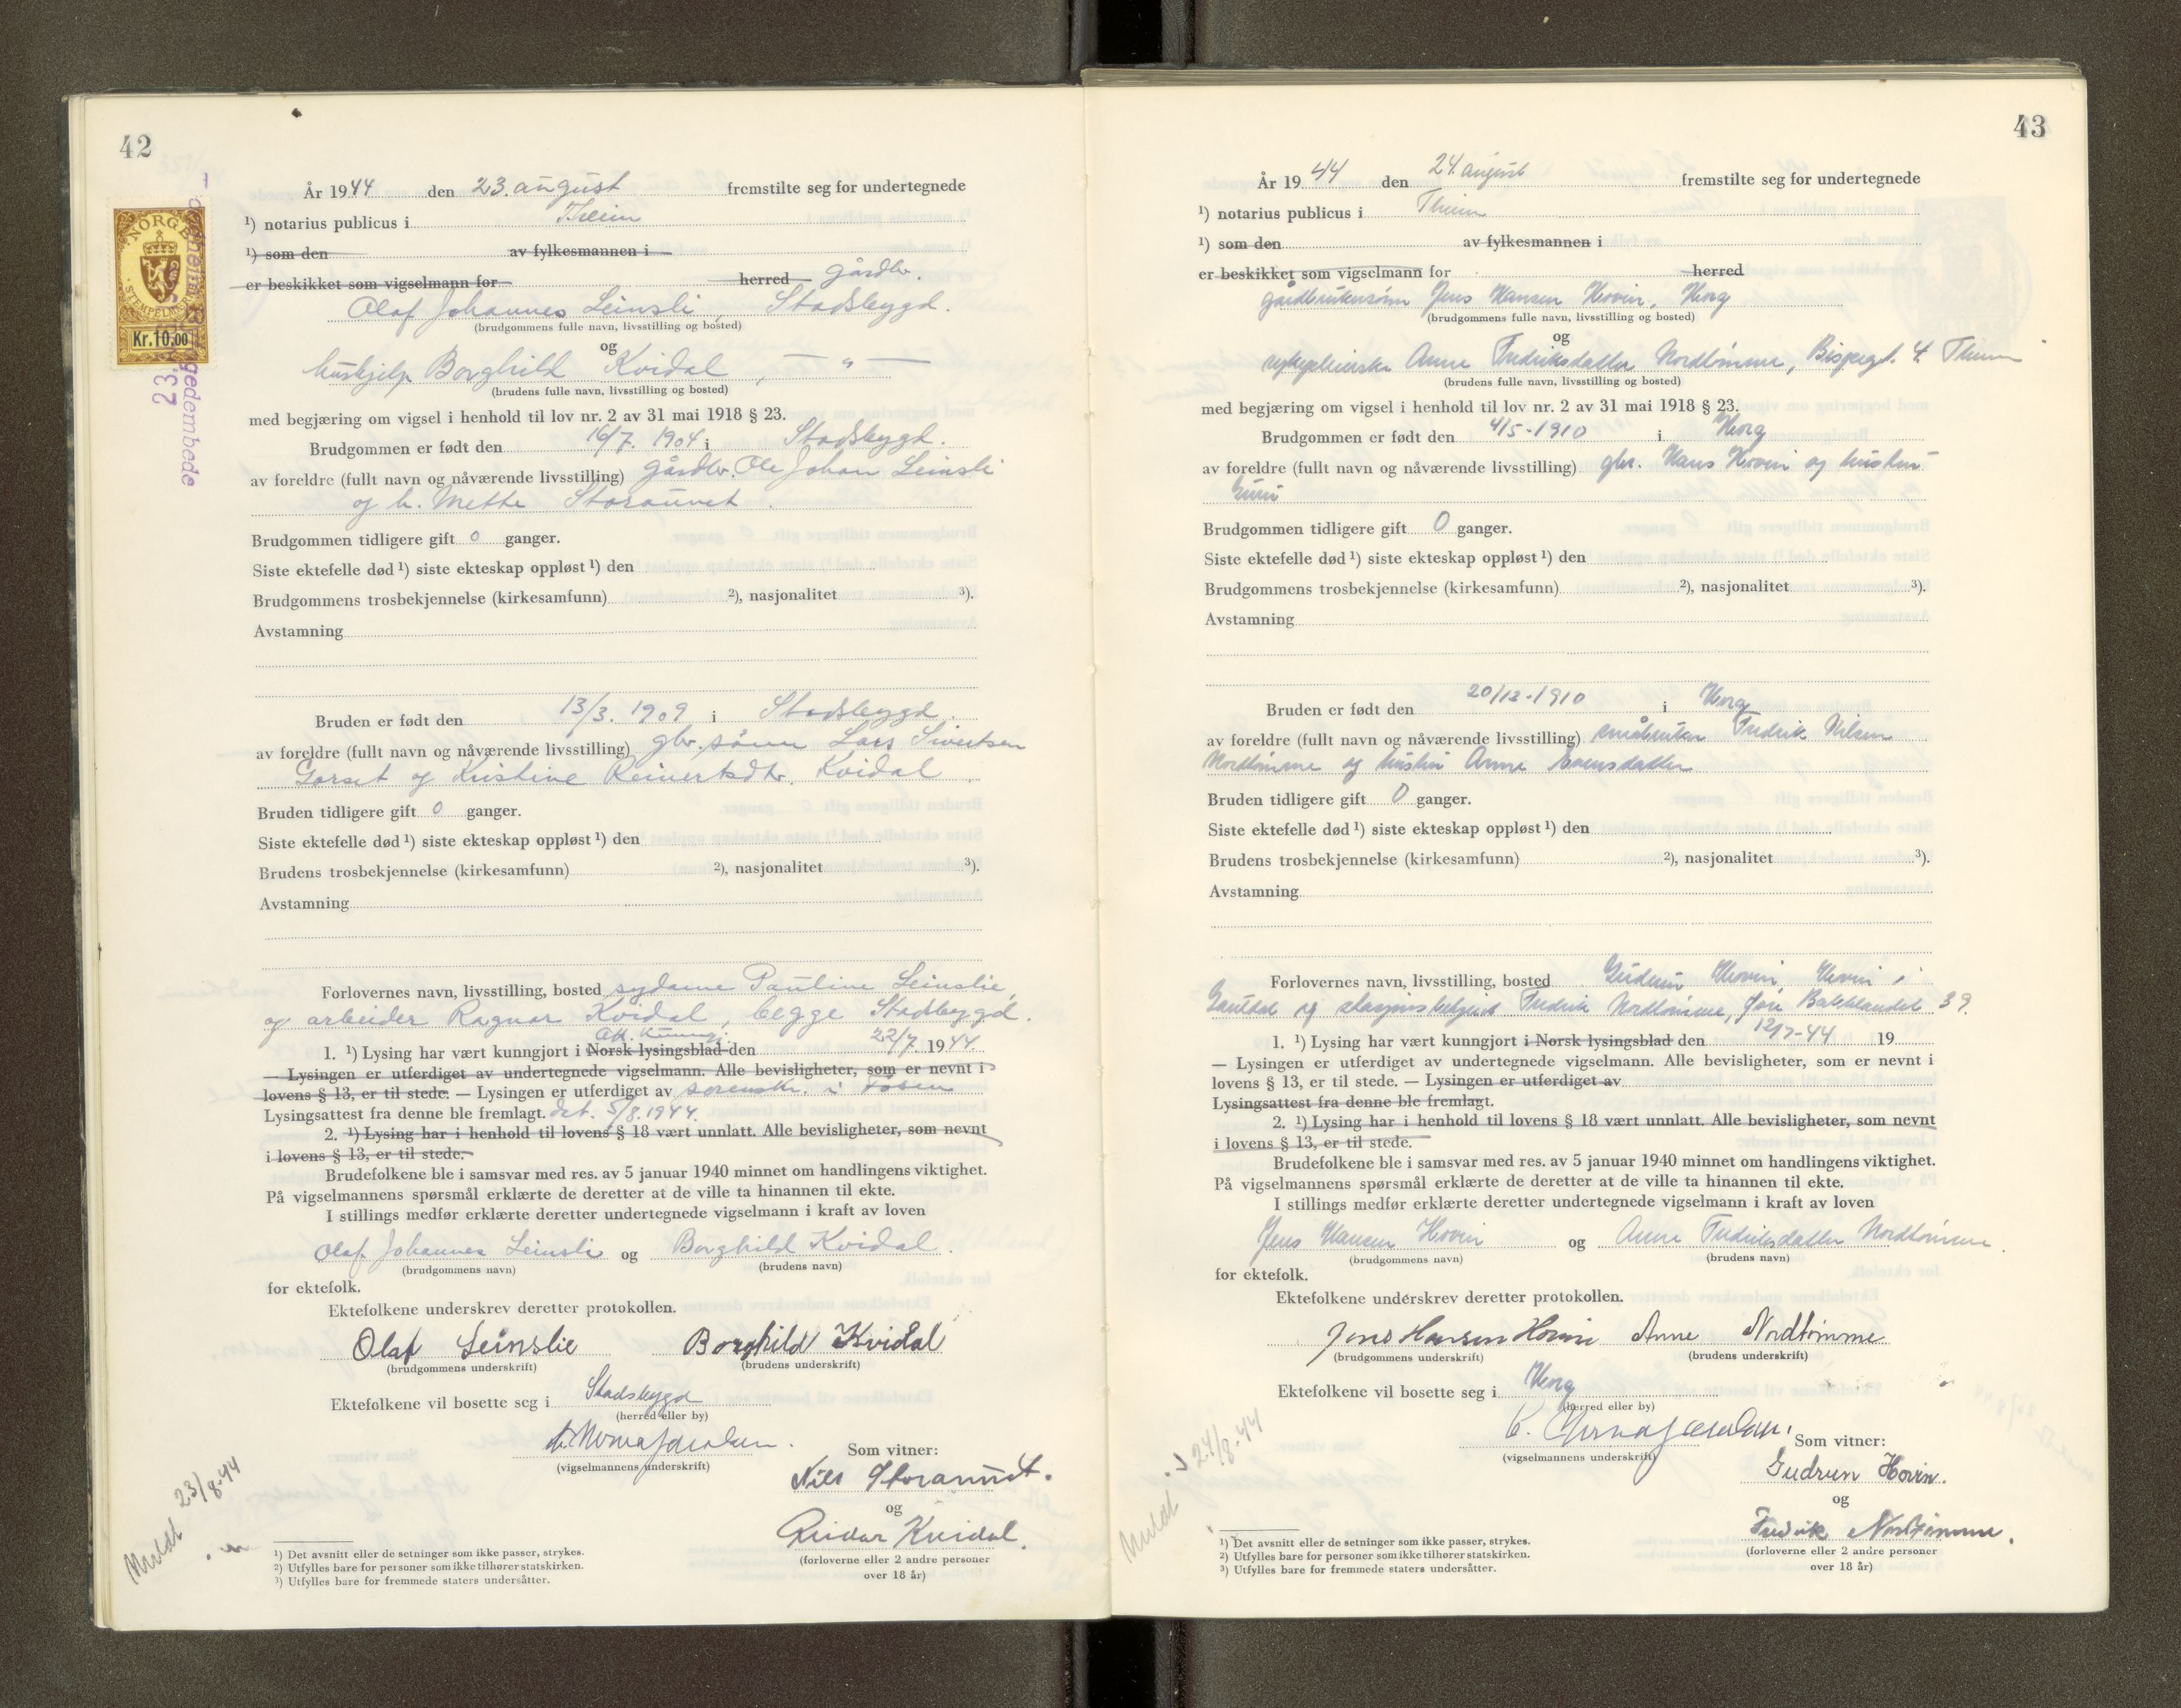 42
År 1944 den 23. august fremstilte seg for undertegnede
¹) notarius publicus i Trheim
¹) som den av fylkesmannen i
er beskikket som vigselmann for herred gårdbr.
Olaf Johannes Leinsli, Stadsbygd.
(brudgommens fulle navn, livsstilling og bosted)
og
hushjelp Borghild Kvidal, — " —
(brudens fulle navn, livsstilling og bosted)
med begjæring om vigsel i henhold til lov nr. 2 av 31 mai 1918 § 23.
Brudgommen er født den 16/7. 1904 i Stadsbygd.
av foreldre (fullt navn og nåværende livsstilling) gårdbr. Ole Johan Leinsli
og h. Mette Storaunet.
Brudgommen tidligere gift 0 ganger.
Siste ektefelle død ¹) siste ekteskap oppløst ¹) den
Brudgommens trosbekjennelse (kirkesamfunn) ²), nasjonalitet ³).
Avstamning
Bruden er født den 13/3. 1909 i Stadsbygd.
av foreldre (fullt navn og nåværende livsstilling) gbr. sønn Lars Sivertsen
Gorset og Kristine Reinertsdtr. Kvidal
Bruden tidligere gift 0 ganger.
Siste ektefelle død ¹) siste ekteskap oppløst ¹) den
Brudens trosbekjennelse (kirkesamfunn) ²), nasjonalitet ³).
Avstamning
Forlovernes navn, livsstilling, bosted sydame Pauline Leinslie,
og arbeider Ragnar Kvidal, begge Stadsbygd.
1. ¹) Lysing har vært kunngjort i Norsk lysingsblad den 22/7. 1944.
— Lysingen er utferdiget av undertegnede vigselmann. Alle bevisligheter, som er nevnt i
lovens § 13, er til stede. — Lysingen er utferdiget av sorenskr. i Fosen
Lysingsattest fra denne ble fremlagt. dat. 5/8. 1944.
2. ¹) Lysing har i henhold til lovens § 18 vært unnlatt. Alle bevisligheter, som nevnt
i lovens § 13, er til stede.
Brudefolkene ble i samsvar med res. av 5 januar 1940 minnet om handlingens viktighet.
På vigselmannens spørsmål erklærte de deretter at de ville ta hinannen til ekte.
I stillings medfør erklærte deretter undertegnede vigselmann i kraft av loven
Olaf Johannes Leinsli og Borghild Kvidal.
(brudgommens navn) (brudens navn)
for ektefolk.
Ektefolkene underskrev deretter protokollen.
Olaf Leinslie Borghild Kvidal
(brudgommens underskrift) (brudens underskrift)
Ektefolkene vil bosette seg i Stadsbygd
(herred eller by)
(vigselmannens underskrift)
Som vitner:
Nils Storaunet.
og
Reidar Kvidal.
(forloverne eller 2 andre personer
over 18 år)
Meldt 23/8-44
¹) Det avsnitt eller de setninger som ikke passer, strykes.
²) Utfylles bare for personer som ikke tilhører statskirken.
³) Utfylles bare for fremmede staters undersåtter.
NORGE
STEMPELMERKE
Kr. 10.00
43
År 1944 den 24. august fremstilte seg for undertegnede
¹) notarius publicus i Trheim
¹) som den av fylkesmannen i
er beskikket som vigselmann for herred
gårdbrukersønn Jens Hansen Hovin, Horg
(brudgommens fulle navn, livsstilling og bosted)
og
sykepleierske Anne Fredriksdatter Nordtømme, Bispegt. 4. Trheim
(brudens fulle navn, livsstilling og bosted)
med begjæring om vigsel i henhold til lov nr. 2 av 31 mai 1918 § 23.
Brudgommen er født den 4/5-1910 i Horg
av foreldre (fullt navn og nåværende livsstilling) gbr. Hans Hovin og hustru
Guri
Brudgommen tidligere gift 0 ganger.
Siste ektefelle død ¹) siste ekteskap oppløst ¹) den
Brudgommens trosbekjennelse (kirkesamfunn) ²), nasjonalitet ³).
Avstamning
Bruden er født den 20/12-1910 i Horg
av foreldre (fullt navn og nåværende livsstilling) småbruker Fredrik Nilsen
Nordtømme og hustru Anne Evensdatter
Bruden tidligere gift 0 ganger.
Siste ektefelle død ¹) siste ekteskap oppløst ¹) den
Brudens trosbekjennelse (kirkesamfunn) ²), nasjonalitet ³).
Avstamning
Forlovernes navn, livsstilling, bosted Gudrun Hovin, Hovin i
Gauldal og stasjonsbetjent Fredrik Nordtømme, Øvre Bakklandet 39.
1. ¹) Lysing har vært kunngjort i Norsk lysingsblad den 12/7-44 19
— Lysingen er utferdiget av undertegnede vigselmann. Alle bevisligheter, som er nevnt i
lovens § 13, er til stede. — Lysingen er utferdiget av
Lysingsattest fra denne ble fremlagt.
2. ¹) Lysing har i henhold til lovens § 18 vært unnlatt. Alle bevisligheter, som nevnt
i lovens § 13, er til stede.
Brudefolkene ble i samsvar med res. av 5 januar 1940 minnet om handlingens viktighet.
På vigselmannens spørsmål erklærte de deretter at de ville ta hinannen til ekte.
I stillings medfør erklærte deretter undertegnede vigselmann i kraft av loven
Jens Hansen Hovin og Anne Fredriksdatter Nordtømme.
(brudgommens navn) (brudens navn)
for ektefolk.
Ektefolkene underskrev deretter protokollen.
Jens Hansen Hovin Anne Nordtømme
(brudgommens underskrift) (brudens underskrift)
Ektefolkene vil bosette seg i Horg
(herred eller by)
(vigselmannens underskrift)
Som vitner:
Gudrun Hovin.
og
Fredrik Nordtømme.
(forloverne eller 2 andre personer
over 18 år)
Meldt 24/8-44
¹) Det avsnitt eller de setninger som ikke passer, strykes.
²) Utfylles bare for personer som ikke tilhører statskirken.
³) Utfylles bare for fremmede staters undersåtter.